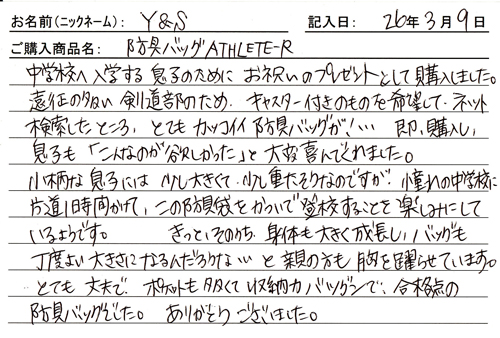 お名前(ニックネーム): Y&S 記入日: 26年3月9日
ご購入商品名: 防具バッグATHLETE-R
中学校へ入学する息子のために お祝いのプレゼントとして購入しました。
遠征の多い剣道部のため、キャスター付きのものを希望して、ネット
検索したところ、とてもカッコイイ防具バッグが!… 即、購入し、
息子も「こんなのが欲しかった」と大変喜んでくれました。
小柄な息子には 少し大きくて、少し重たそうなのですが、憧れの中学校に
片道1時間かけて、この防具袋をかついで登校することを楽しみにして
いるようです。 きっと、そのうち、身体も大きく成長し、バッグも
丁度よい大きさになるんだろうな… と親の方も胸を躍らせています。
とても丈夫で、ポケットも多くて収納力バツグンで、合格点の
防具バッグでした。 ありがとうございました。